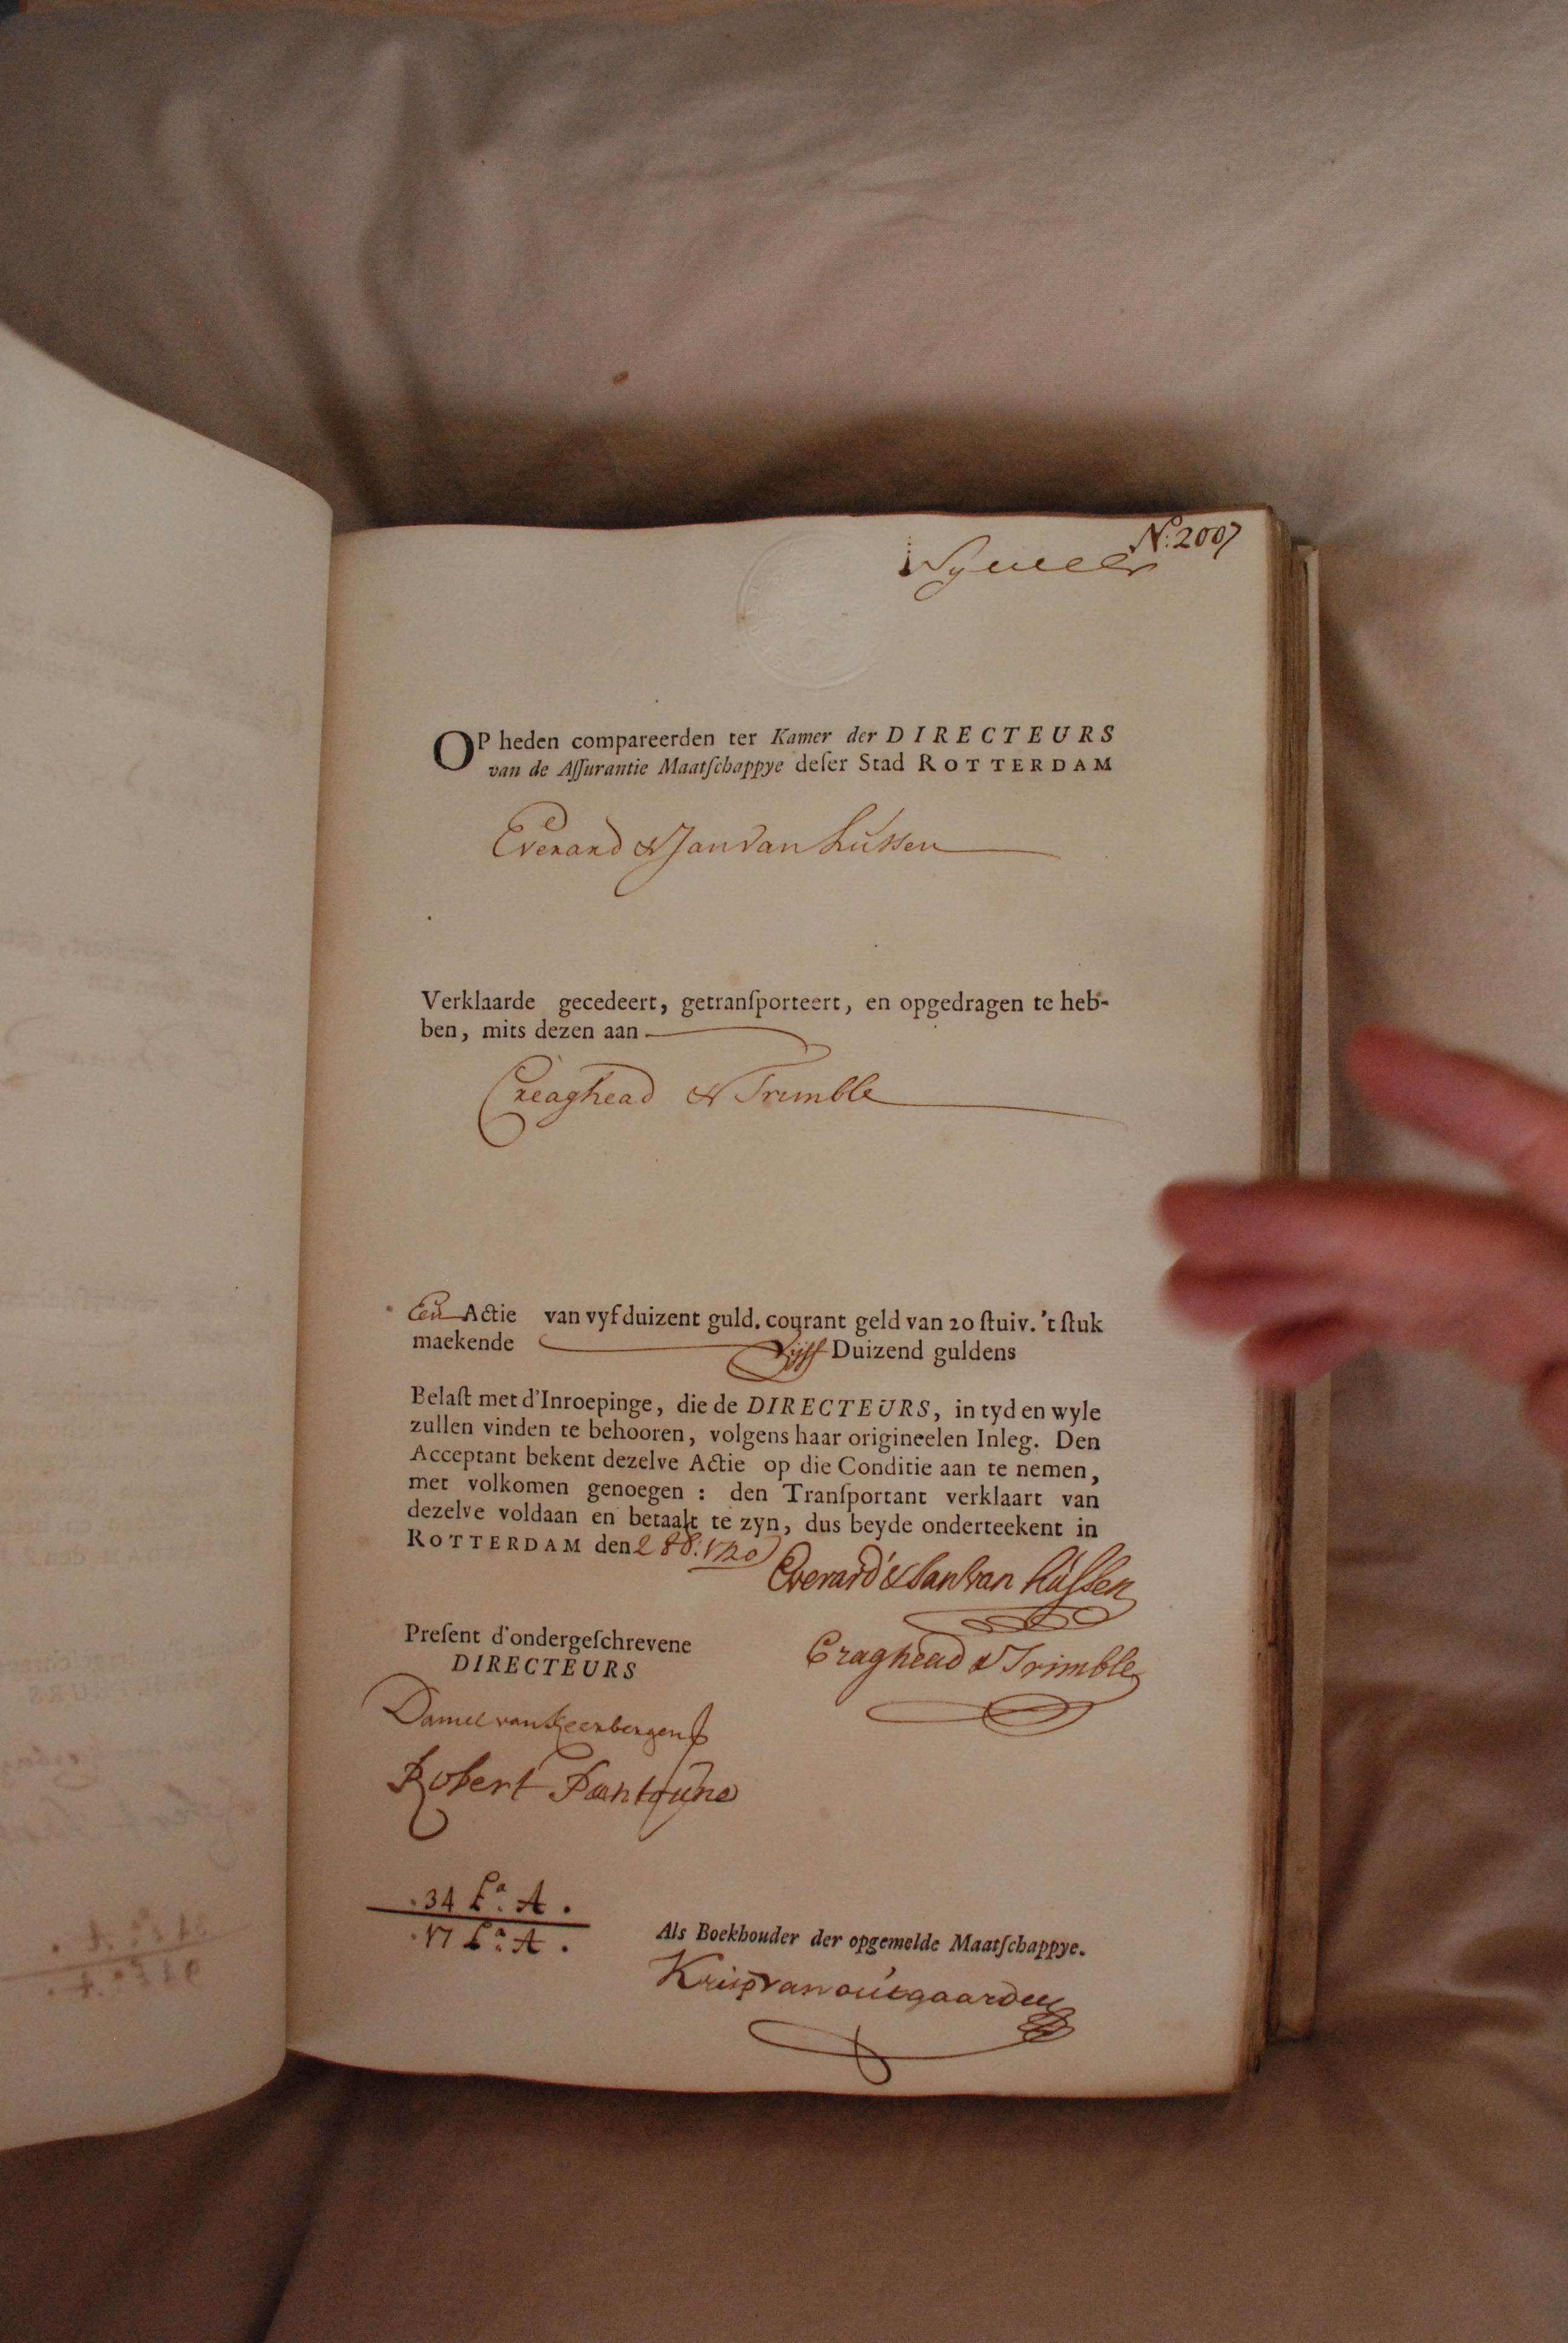 N.º 2007
OP heden compareerden ter Kamer der DIRECTEURS
van de Aſſurantie Maatſchappye deſer Stad ROTTERDAM
Everard & Jan van Hússen
Verklaarde gecedeert, getranſporteert, en opgedragen te heb-
ben, mits dezen aan
Creaghead & Trimble
Een Actie van vyf duizent guld. courant geld van 20 ſtuiv. 't ſtuk
maekende Vijff Duizend guldens
Belaſt met d'Inroepinge, die de DIRECTEURS, in tyd en wyle
zullen vinden te behooren, volgens haar origineelen Inleg. Den
Acceptant bekent dezelve Actie op die Conditie aan te nemen,
met volkomen genoegen : den Tranſportant verklaart van
dezelve voldaan en betaalt te zyn, dus beyde onderteekent in
ROTTERDAM den 2 8b: 1720
Everard & Jan van Hússen
Preſent d'ondergeſchrevene
DIRECTEURS
Craghead & Trimble
Daniel van Keerbergen
Robert
34 L.ª A.
17 L.ª A.
Als Boekhouder der opgemelde Maatſchappye.
Krisp van outgaarden